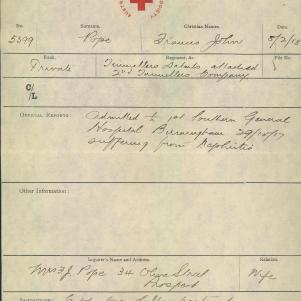 No. Surname. Christian Names. Date
5399 Pope Francis John 8/2/18
Rank. Regiment, &c. File No.
Private Tunnellers Depots, attached
2nd Tunnellers Company
C/
/L
OFFICIAL REPORTS: Admitted to 1st Southern General
Hospital Birmingham 29/10/17
suffering from Nephritis
Other Information:
Inquirer's Name and Address. Relation
Mrs F J. Pope 34 Olive Street Wife
Prospect